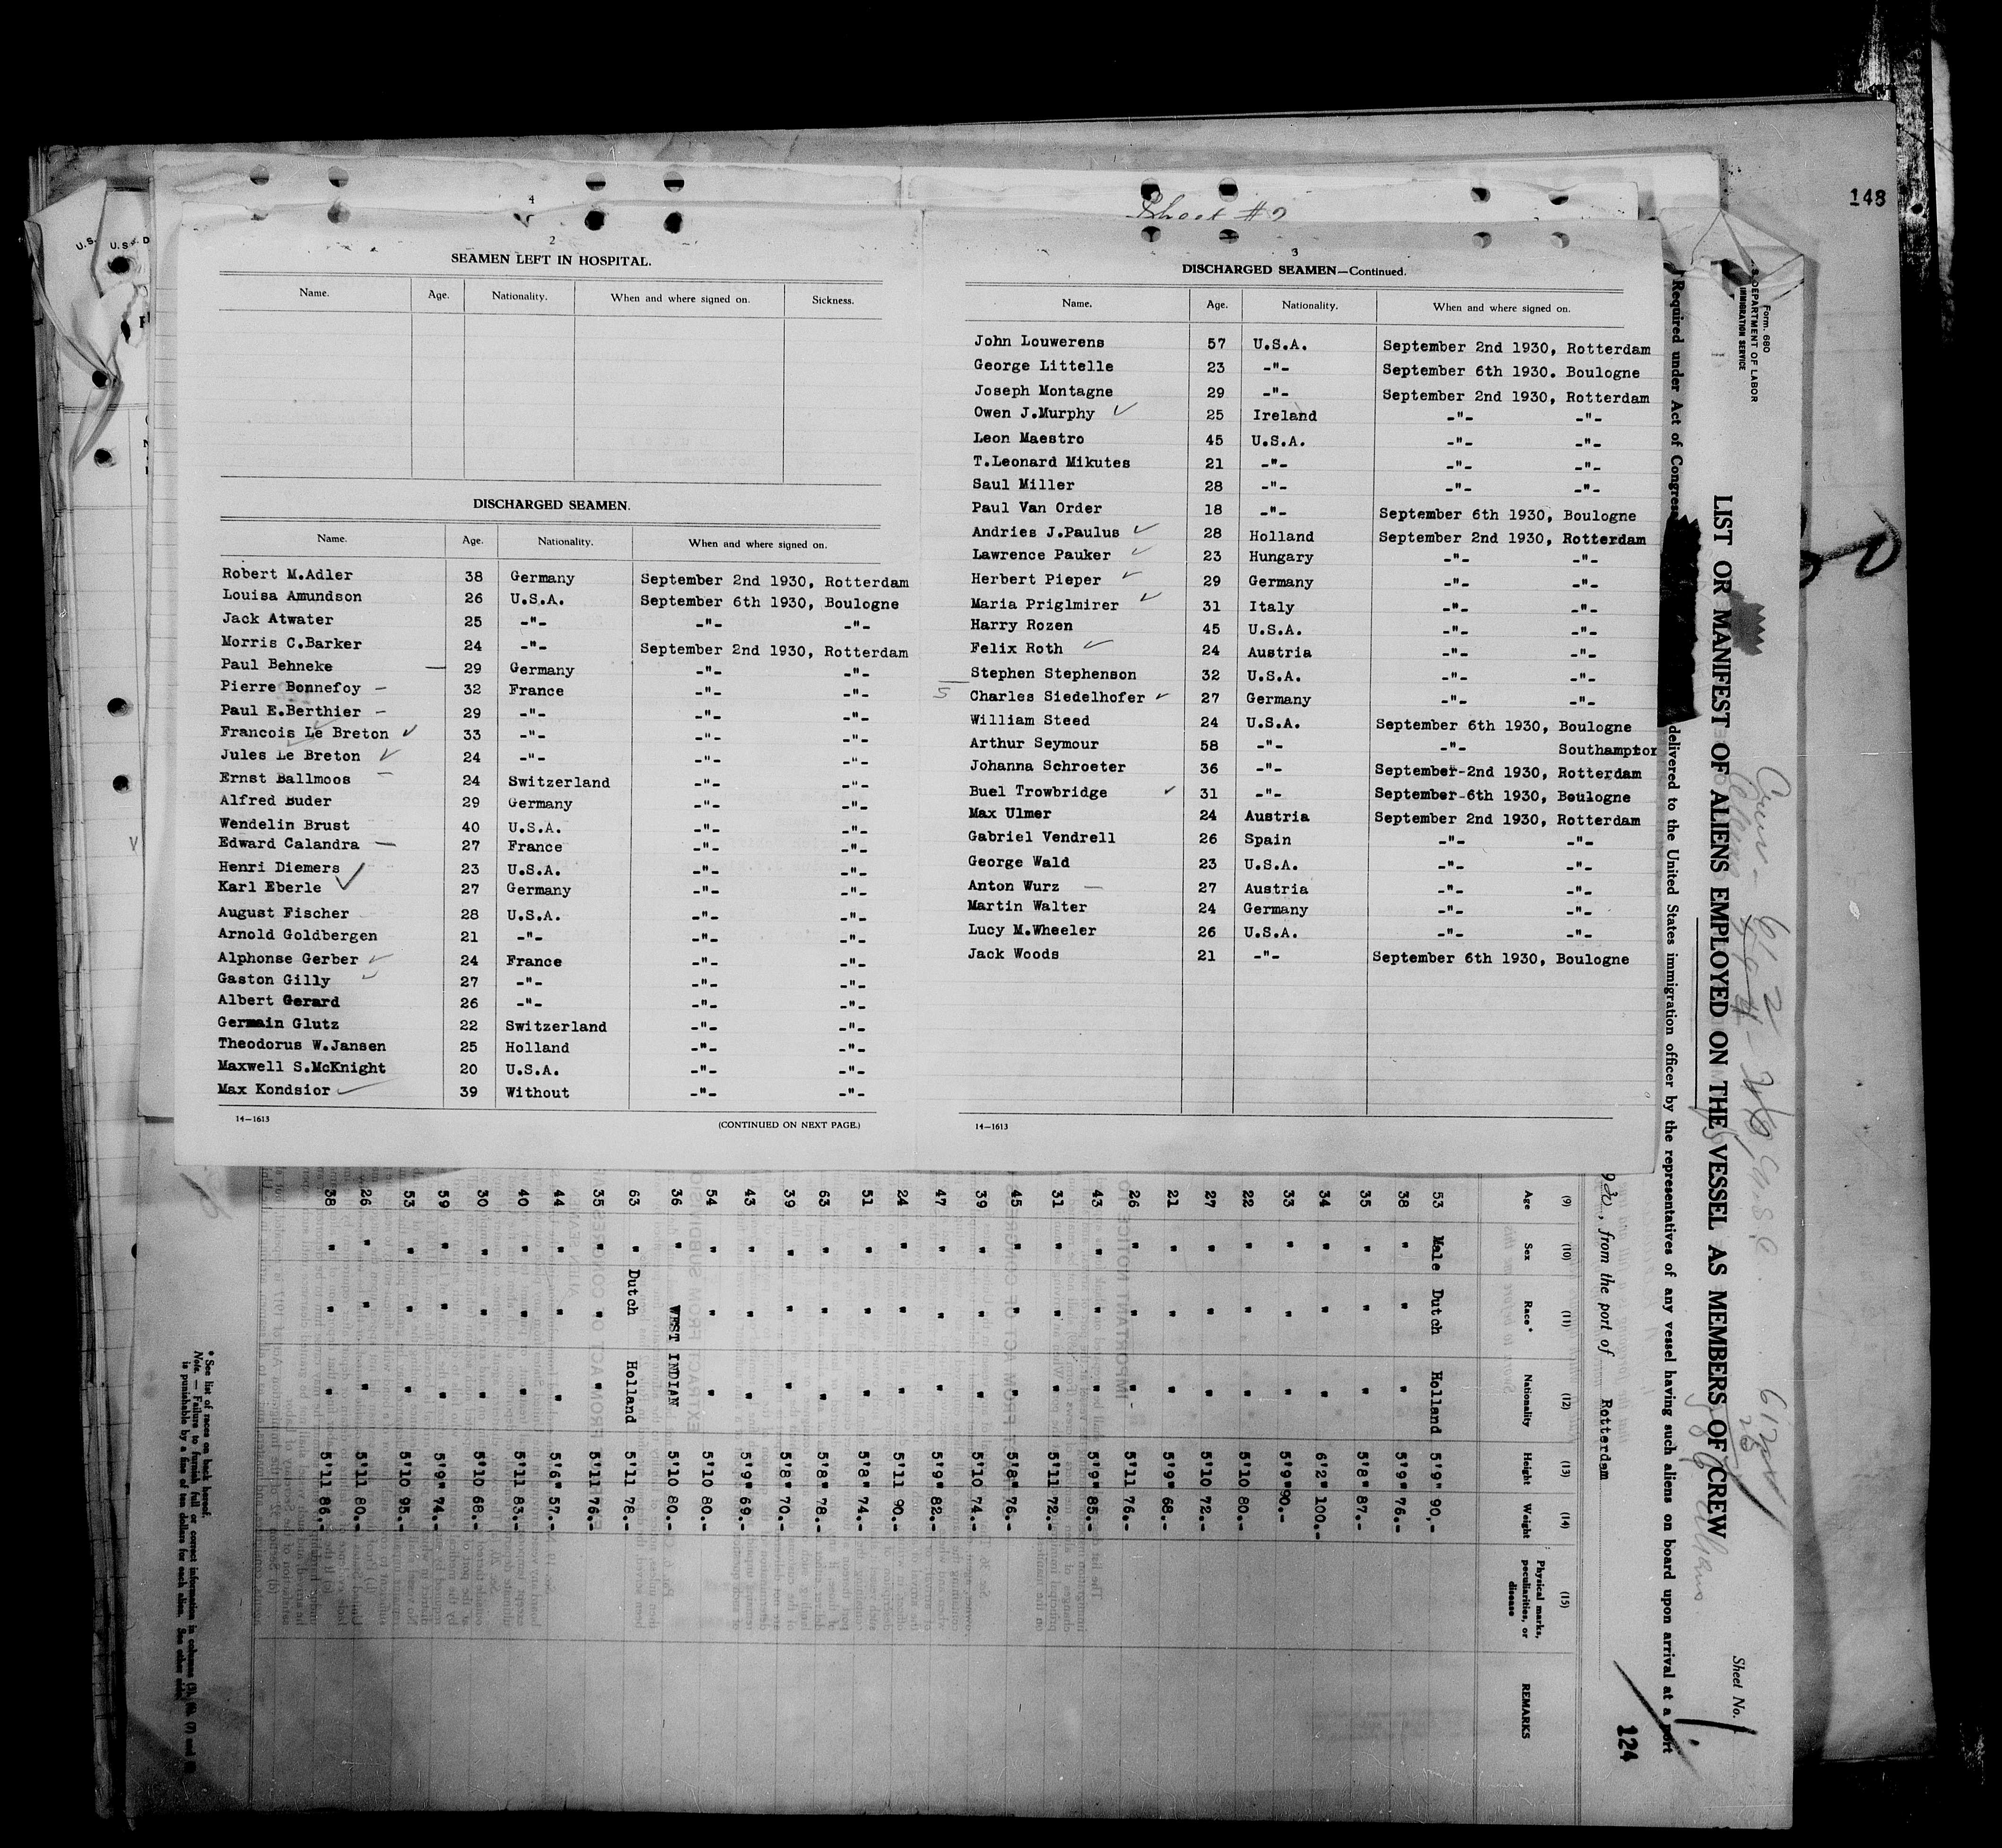 148
4
Sheet #2
2
SEAMEN LEFT IN HOSPITAL.
Name. Age. Nationality. When and where signed on. Sickness.
DISCHARGED SEAMEN.
Name. Age. Nationality. When and where signed on.
Robert M.Adler 38 Germany September 2nd 1930, Rotterdam
Louisa Amundson 26 U.S.A. September 6th 1930, Boulogne
Jack Atwater 25 -"- -"- -"-
Morris C.Barker 24 -"- September 2nd 1930, Rotterdam
Paul Behneke 29 Germany -"- -"-
Pierre Bonnefoy 32 France -"- -"-
Paul E.Berthier 29 -"- -"- -"-
Francois Le Breton 33 -"- -"- -"-
Jules Le Breton 24 -"- -"- -"-
Ernst Ballmoos 24 Switzerland -"- -"-
Alfred Buder 29 Germany -"- -"-
Wendelin Brust 40 U.S.A. -"- -"-
Edward Calandra 27 France -"- -"-
Henri Diemers 23 U.S.A. -"- -"-
Karl Eberle 27 Germany -"- -"-
August Fischer 28 U.S.A. -"- -"-
Arnold Goldbergen 21 -"- -"- -"-
Alphonse Gerber 24 France -"- -"-
Gaston Gilly 27 -"- -"- -"-
Albert Gerard 26 -"- -"- -"-
Germain Glutz 22 Switzerland -"- -"-
Theodorus W.Jansen 25 Holland -"- -"-
Maxwell S.McKnight 20 U.S.A. -"- -"-
Max Kondsior 39 Without -"- -"-
14—1613 (CONTINUED ON NEXT PAGE.)
3
DISCHARGED SEAMEN—Continued.
Name. Age. Nationality. When and where signed on.
John Louwerens 57 U.S.A. September 2nd 1930, Rotterdam
George Littelle 23 -"- September 6th 1930. Boulogne
Joseph Montagne 29 -"- September 2nd 1930, Rotterdam
Owen J.Murphy 25 Ireland -"- -"-
Leon Maestro 45 U.S.A. -"- -"-
T.Leonard Mikutes 21 -"- -"- -"-
Saul Miller 28 -"- -"- -"-
Paul Van Order 18 -"- September 6th 1930, Boulogne
Andries J.Paulus 28 Holland September 2nd 1930, Rotterdam
Lawrence Pauker 23 Hungary -"- -"-
Herbert Pieper 29 Germany -"- -"-
Maria Priglmirer 31 Italy -"- -"-
Harry Rozen 45 U.S.A. -"- -"-
Felix Roth 24 Austria -"- -"-
Stephen Stephenson 32 U.S.A. -"- -"-
5 Charles Siedelhofer 27 Germany -"- -"-
William Steed 24 U.S.A. September 6th 1930, Boulogne
Arthur Seymour 58 -"- -"- Southampton
Johanna Schroeter 36 -"- September-2nd 1930, Rotterdam
Buel Trowbridge 31 -"- September-6th 1930, Boulogne
Max Ulmer 24 Austria September 2nd 1930, Rotterdam
Gabriel Vendrell 26 Spain -"- -"-
George Wald 23 U.S.A. -"- -"-
Anton Wurz 27 Austria -"- -"-
Martin Walter 24 Germany -"- -"-
Lucy M.Wheeler 26 U.S.A. -"- -"-
Jack Woods 21 -"- September 6th 1930, Boulogne
14—1613
Form 680
U.S. DEPARTMENT OF LABOR
IMMIGRATION SERVICE
Sheet No. 1
LIST OR MANIFEST OF ALIENS EMPLOYED ON THE VESSEL AS MEMBERS OF CREW
Required under Act of Congress delivered to the United States immigration officer by the representatives of any vessel having such aliens on board upon arrival at a port
930, from the port of Rotterdam
124
(9) (10) (11) (12) (13) (14) (15)
Age Sex Race* Nationality Height Weight Physical marks, peculiarities, or disease REMARKS
53 Male Dutch Holland 5'9" 90,-
38 " " " 5'9" 76.-
35 " " " 5'8" 87.-
34 " " " 6'2" 100.-
33 " " " 5'9" 90.-
22 " " " 5'10 80.-
27 " " " 5'10 72.-
21 " " " 5'9" 68.-
26 " " " 5'11 76.-
43 " " " 5'9" 85.-
31 " " " 5'11 72.-
45 " " " 5'8" 76.-
39 " " " 5'10 74.-
47 " " " 5'9" 82.-
24 " " " 5'11 90.-
51 " " " 5'8" 74.-
63 " " " 5'8" 78.-
39 " " " 5'8" 70.-
43 " " " 5'9" 69.-
54 " " " 5'10 80.-
36 " WEST INDIAN 5'10 80.-
63 " Dutch Holland 5'11 78.-
35 " " " 5'11 76.-
44 " " " 5'6" 57.-
40 " " " 5'11 83.-
30 " " " 5'10 68.-
59 " " " 5'9" 74.-
53 " " " 5'10 95.-
26 " " " 5'11 80.-
38 " " " 5'11 86.-
* See list of races on back hereof.
Note. — Failure to furnish full or correct information in columns (3), (6), (7) and (8)
is punishable by a fine of ten dollars for each alien. See other side.